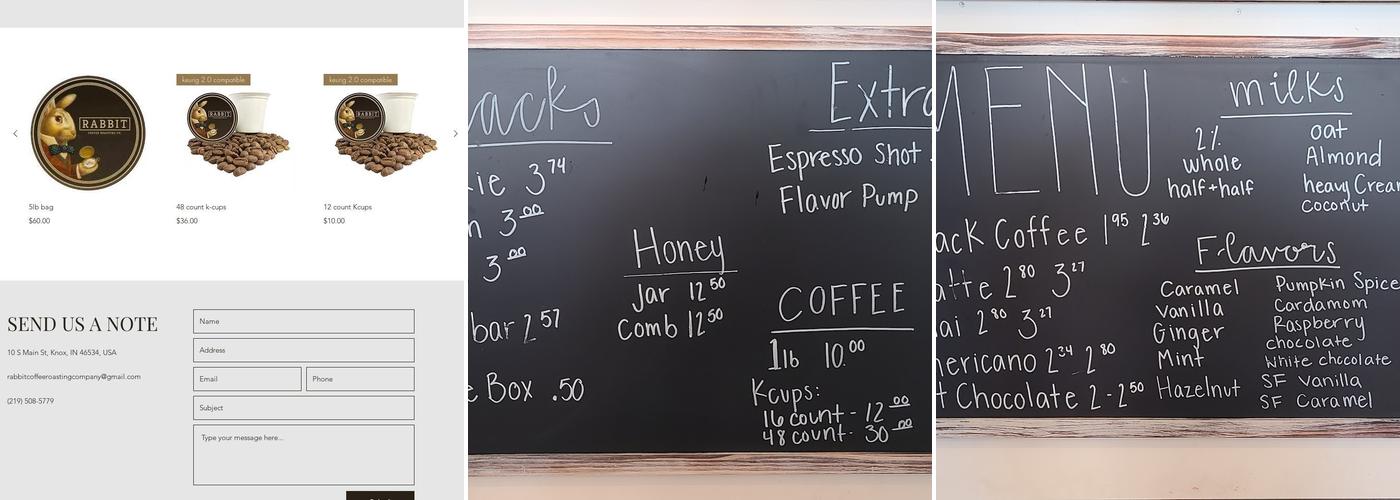 keurig 2.0 compatible
keurig 2.0 compatible
RABBIT
COFFEE ROASTING CO.
RABBIT
RABBIT
5lb bag
48 count k-cups
12 count Kcups
$60.00
$36.00
$10.00
SEND US A NOTE
10 S Main St, Knox, IN 46534, USA
rabbitcoffeeroastingcompany@gmail.com
(219) 508-5779
Name
Address
Email
Phone
Subject
Type your message here...
acks
kie 3 74
n 3 00
3 00
bar 2 57
e Box .50
Honey
Jar 12 50
Comb 12 50
Extra
Espresso Shot
Flavor Pump
COFFEE
1lb 10.00
Kcups:
16 count - 12 00
48 count - 30 00
MENU
ack Coffee 1 95 2 36
atte 2 80 3 27
ai 2 80 3 27
mericano 2 34 2 80
t Chocolate 2 - 2 50
milks
2%
whole
half+half
oat
Almond
heavy Crea
coconut
Flavors
Caramel
Vanilla
Ginger
Mint
Hazelnut
Pumpkin Spice
Cardamom
Raspberry
chocolate
white chocolate
SF Vanilla
SF Caramel